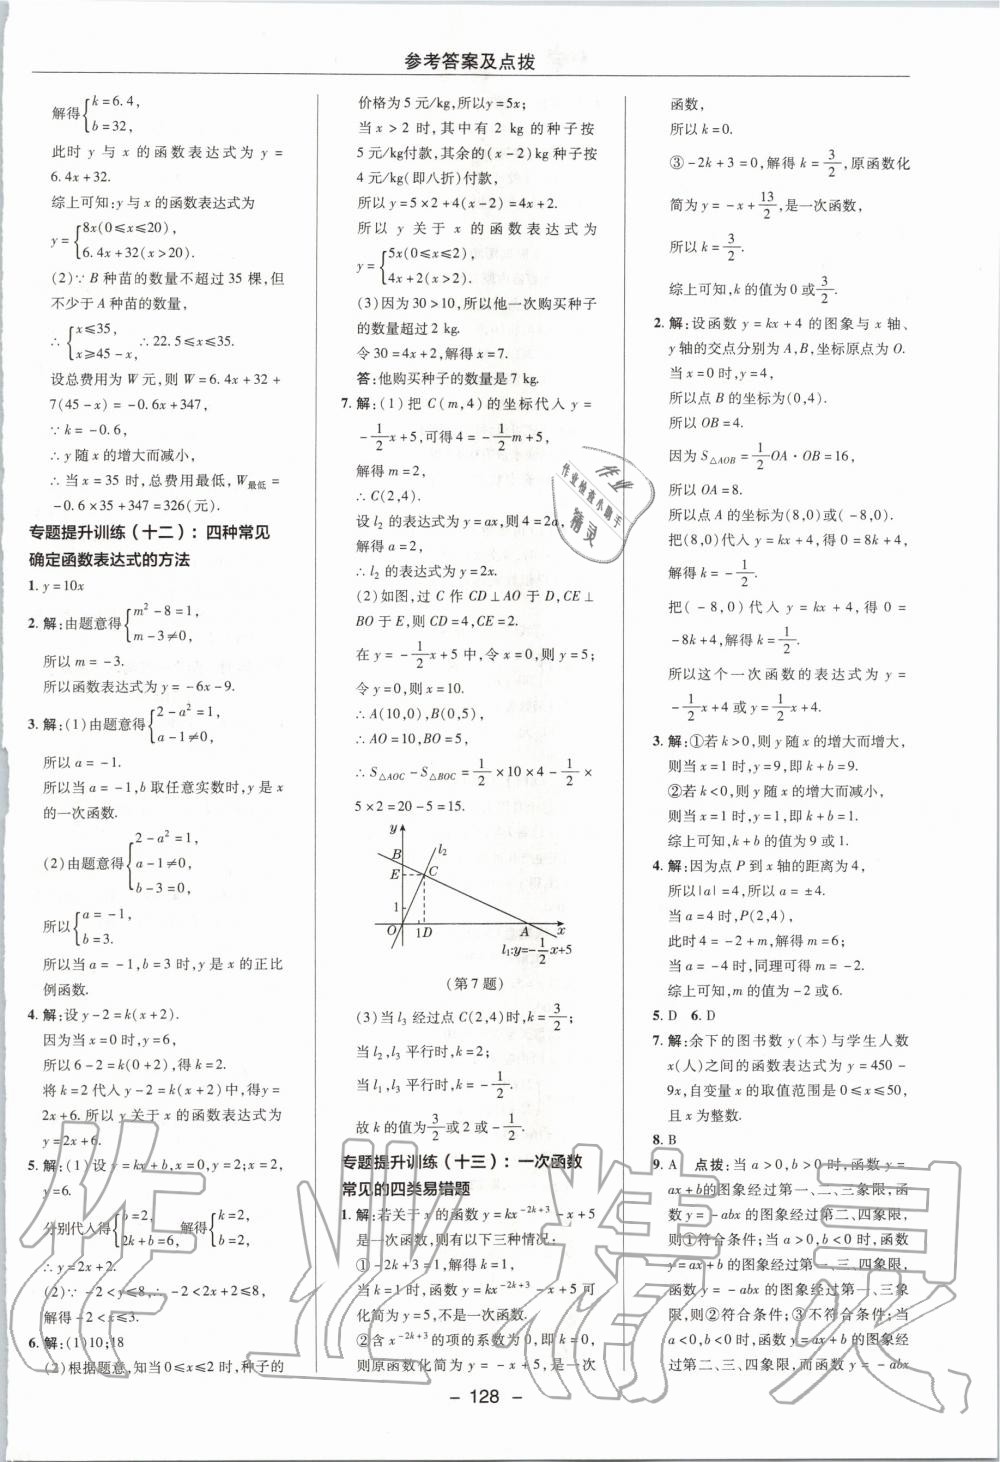 参考答案及点拨
解得{k=6.4,
b=32,
此时 y 与 x 的函数表达式为 y=
6.4x+32.
综上可知:y 与 x 的函数表达式为
y={8x(0≤x≤20),
6.4x+32(x>20).
(2)∵ B 种苗的数量不超过 35 棵,但
不少于 A 种苗的数量,
∴{x≤35,
x≥45-x, ∴22.5≤x≤35.
设总费用为 W 元,则 W=6.4x+32+
7(45-x)=-0.6x+347,
∵k=-0.6,
∴y 随 x 的增大而减小,
∴当 x=35 时,总费用最低,W最低=
-0.6×35+347=326(元).
专题提升训练(十二):四种常见
确定函数表达式的方法
1. y=10x
2. 解:由题意得{m²-8=1,
m-3≠0,
所以 m=-3.
所以函数表达式为 y=-6x-9.
3. 解:(1)由题意得{2-a²=1,
a-1≠0,
所以 a=-1.
所以当 a=-1,b 取任意实数时,y 是 x
的一次函数.
(2)由题意得{2-a²=1,
a-1≠0,
b-3=0,
所以{a=-1,
b=3.
所以当 a=-1,b=3 时,y 是 x 的正比
例函数.
4. 解:设 y-2=k(x+2).
因为当 x=0 时,y=6,
所以 6-2=k(0+2),得 k=2.
将 k=2 代入 y-2=k(x+2)中,得y=
2x+6.所以 y 关于 x 的函数表达式为
y=2x+6.
5. 解:(1)设 y=kx+b,x=0,y=2;x=2,
y=6.
分别代入得{b=2,
2k+b=6, 解得{k=2,
b=2,
∴y=2x+2.
(2)∵-2<y≤8,∴-2<2x+2≤8,
解得-2<x≤3.
6. 解:(1)10;18
(2)根据题意,知当0≤x≤2时,种子的
价格为5 元/kg,所以y=5x;
当 x>2 时,其中有 2 kg 的种子按
5 元/kg付款,其余的(x-2)kg种子按
4 元/kg(即八折)付款,
所以 y=5×2+4(x-2)=4x+2.
所以 y 关于 x 的函数表达式为
y={5x(0≤x≤2),
4x+2(x>2).
(3)因为30>10,所以他一次购买种子
的数量超过 2 kg.
令30=4x+2,解得 x=7.
答:他购买种子的数量是7 kg.
7. 解:(1)把 C(m,4)的坐标代入 y=
-1/2x+5,可得4=-1/2m+5,
解得 m=2,
∴C(2,4).
设 l₂ 的表达式为 y=ax,则4=2a,
解得 a=2,
∴l₂ 的表达式为 y=2x.
(2)如图,过 C 作 CD⊥AO 于 D,CE⊥
BO 于 E,则 CD=4,CE=2.
在 y=-1/2x+5 中,令 x=0,则 y=5;
令 y=0,则 x=10.
∴A(10,0),B(0,5),
∴AO=10,BO=5,
∴S△AOC-S△BOC=1/2×10×4-1/2×
5×2=20-5=15.
y
B
l₂
E
C
1
O
1D
A
x
l₁:y=-1/2x+5
(第 7 题)
(3)当 l₃ 经过点 C(2,4)时,k=3/2;
当 l₂,l₃ 平行时,k=2;
当 l₁,l₃ 平行时,k=-1/2.
故 k 的值为3/2或2或-1/2.
专题提升训练(十三):一次函数
常见的四类易错题
1. 解:若关于 x 的函数 y=kx^{-2k+3}-x+5
是一次函数,则有以下三种情况:
①-2k+3=1,解得 k=1,
当 k=1 时,函数 y=kx^{-2k+3}-x+5 可
化简为 y=5,不是一次函数.
②含 x^{-2k+3}的项的系数为 0,即 k=0,
则原函数化简为 y=-x+5,是一次
函数,
所以 k=0.
③-2k+3=0,解得 k=3/2,原函数化
简为 y=-x+13/2,是一次函数,
所以 k=3/2.
综上可知,k 的值为0或3/2.
2. 解:设函数 y=kx+4 的图象与 x 轴、
y轴的交点分别为 A,B,坐标原点为 O.
当 x=0 时,y=4,
所以点 B 的坐标为(0,4).
所以 OB=4.
因为 S△AOB=1/2OA·OB=16,
所以 OA=8.
所以点 A 的坐标为(8,0)或(-8,0).
把(8,0)代入 y=kx+4,得 0=8k+4,
解得 k=-1/2.
把(-8,0)代入 y=kx+4,得 0=
-8k+4,解得 k=1/2.
所以这个一次函数的表达式为 y=
-1/2x+4 或 y=1/2x+4.
3. 解:①若 k>0,则 y 随 x 的增大而增大,
则当 x=1 时,y=9,即 k+b=9.
②若 k<0,则 y 随 x 的增大而减小,
则当 x=1 时,y=1,即 k+b=1.
综上可知,k+b 的值为 9 或 1.
4. 解:因为点 P 到 x 轴的距离为 4,
所以|a|=4,所以 a=±4.
当 a=4 时,P(2,4),
此时4=-2+m,解得 m=6;
当 a=-4 时,同理可得 m=-2.
综上可知,m 的值为-2 或 6.
5. D 6. D
7. 解:余下的图书数 y(本)与学生人数
x(人)之间的函数表达式为 y=450-
9x,自变量 x 的取值范围是 0≤x≤50,
且 x 为整数.
8. B
9. A 点拨:当 a>0,b>0 时,函数 y=
ax+b的图象经过第一、二、三象限,函
数 y=-abx 的图象经过第二、四象限,
则①符合条件;当 a>0,b<0 时,函数
y=ax+b 的图象经过第一、三、四象限,
函数 y=-abx 的图象经过第一、三象
限,则②符合条件;③不符合条件;当
a<0,b<0时,函数 y=ax+b 的图象经
过第二、三、四象限,而函数 y=-abx
- 128 -
作业
作业检查小助手
精灵
作业精灵